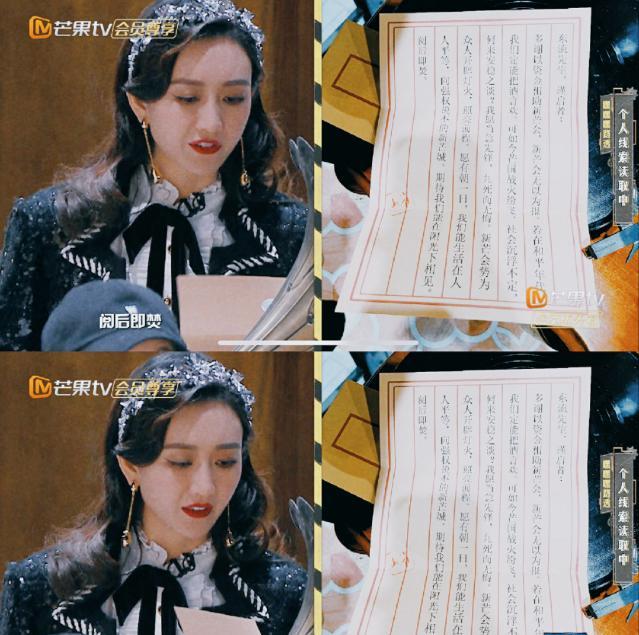 芒果tv 会员尊享
阅后即焚
东流先生，谨启者：
多谢以资金相助新芒会，新芒会无以为报。若在和平年
我们定能把酒言欢，可如今芒国战火纷飞，社会沉浮不定，
何来安稳之谈？我愿当急先锋，九死而无悔，新芒会势为
众人开灯火，照亮前程，愿有朝一日，我们能生活在人
人平等，向强权说不的新芒城。期待我们能在阳光下相见。
阅后即焚。
个人线索读取中
芒果tv
芒果tv 会员尊享
东流先生，谨启者：
多谢以资金相助新芒会，新芒会无以为报。若在和
我们定能把酒言欢，可如今芒国战火纷飞，社会沉浮
何来安稳之谈？我愿当急先锋，九死而无悔，新芒会
众人开灯火，照亮前程，愿有朝一日，我们能生活
人平等，向强权说不的新芒城。期待我们能在阳光下
阅后即焚。
个人线索读取中